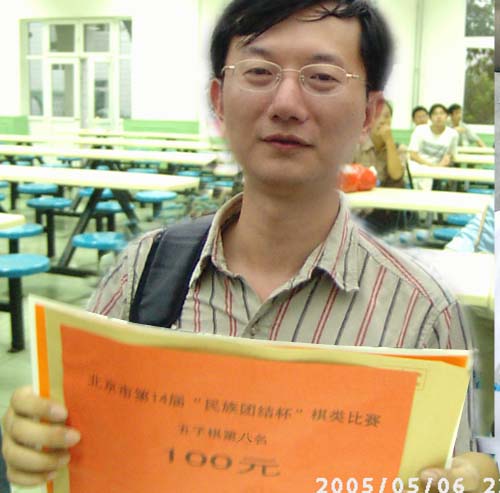 北京市第14届“民族团结杯”棋类比赛
五子棋第八名
100元
2005/05/06 2